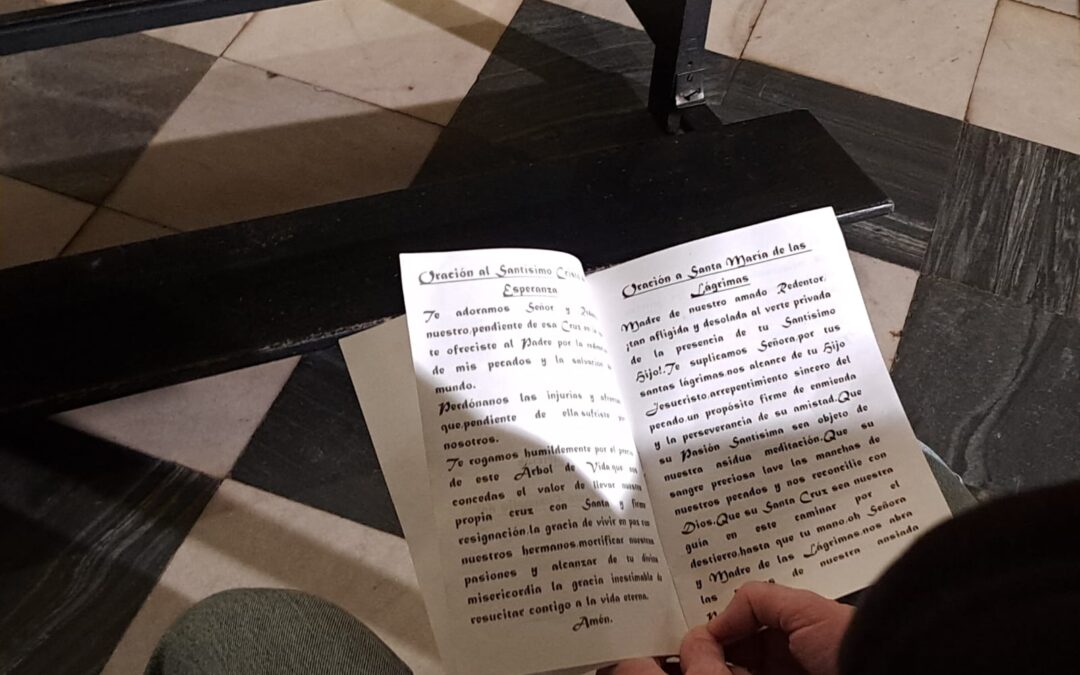 Oración al Santísimo Cristo
Esperanza
Te adoramos Señor y
nuestro,pendiente de esa Cruz
te ofreciste al Padre por la
de mis pecados y la salvación
mundo.
Perdónanos las injurias y
que,pendiente de ella sufriste
nosotros.
Te rogamos humildemente por el
de este Árbol de Vida que nos
concedas el valor de llevar nuestra
propia cruz con Santa y firme
resignación.la gracia de vivir en paz con
nuestros hermanos.mortificar nuestras
pasiones y alcanzar de tu divina
misericordia la gracia inestimable de
resucitar contigo a la vida eterna.
Amén.
Oración a Santa María de las
Lágrimas
Madre de nuestro amado Redentor,
¡tan afligida y desolada al verte privada
de la presencia de tu Santísimo
Hijo!.Te suplicamos Señora,por tus
santas lágrimas,nos alcance de tu Hijo
Jesucristo,arrepentimiento sincero del
pecado,un propósito firme de enmienda
y la perseverancia de su amistad.Que
su Pasión Santísima sea objeto de
nuestra asidua meditación.Que su
sangre preciosa lave las manchas de
nuestros pecados y nos reconcilie con
Dios.Que su Santa Cruz sea nuestra
guía en este caminar por el
destierro,hasta que tu mano,oh Señora
y Madre de las Lágrimas,nos abra
las de nuestra ansiada